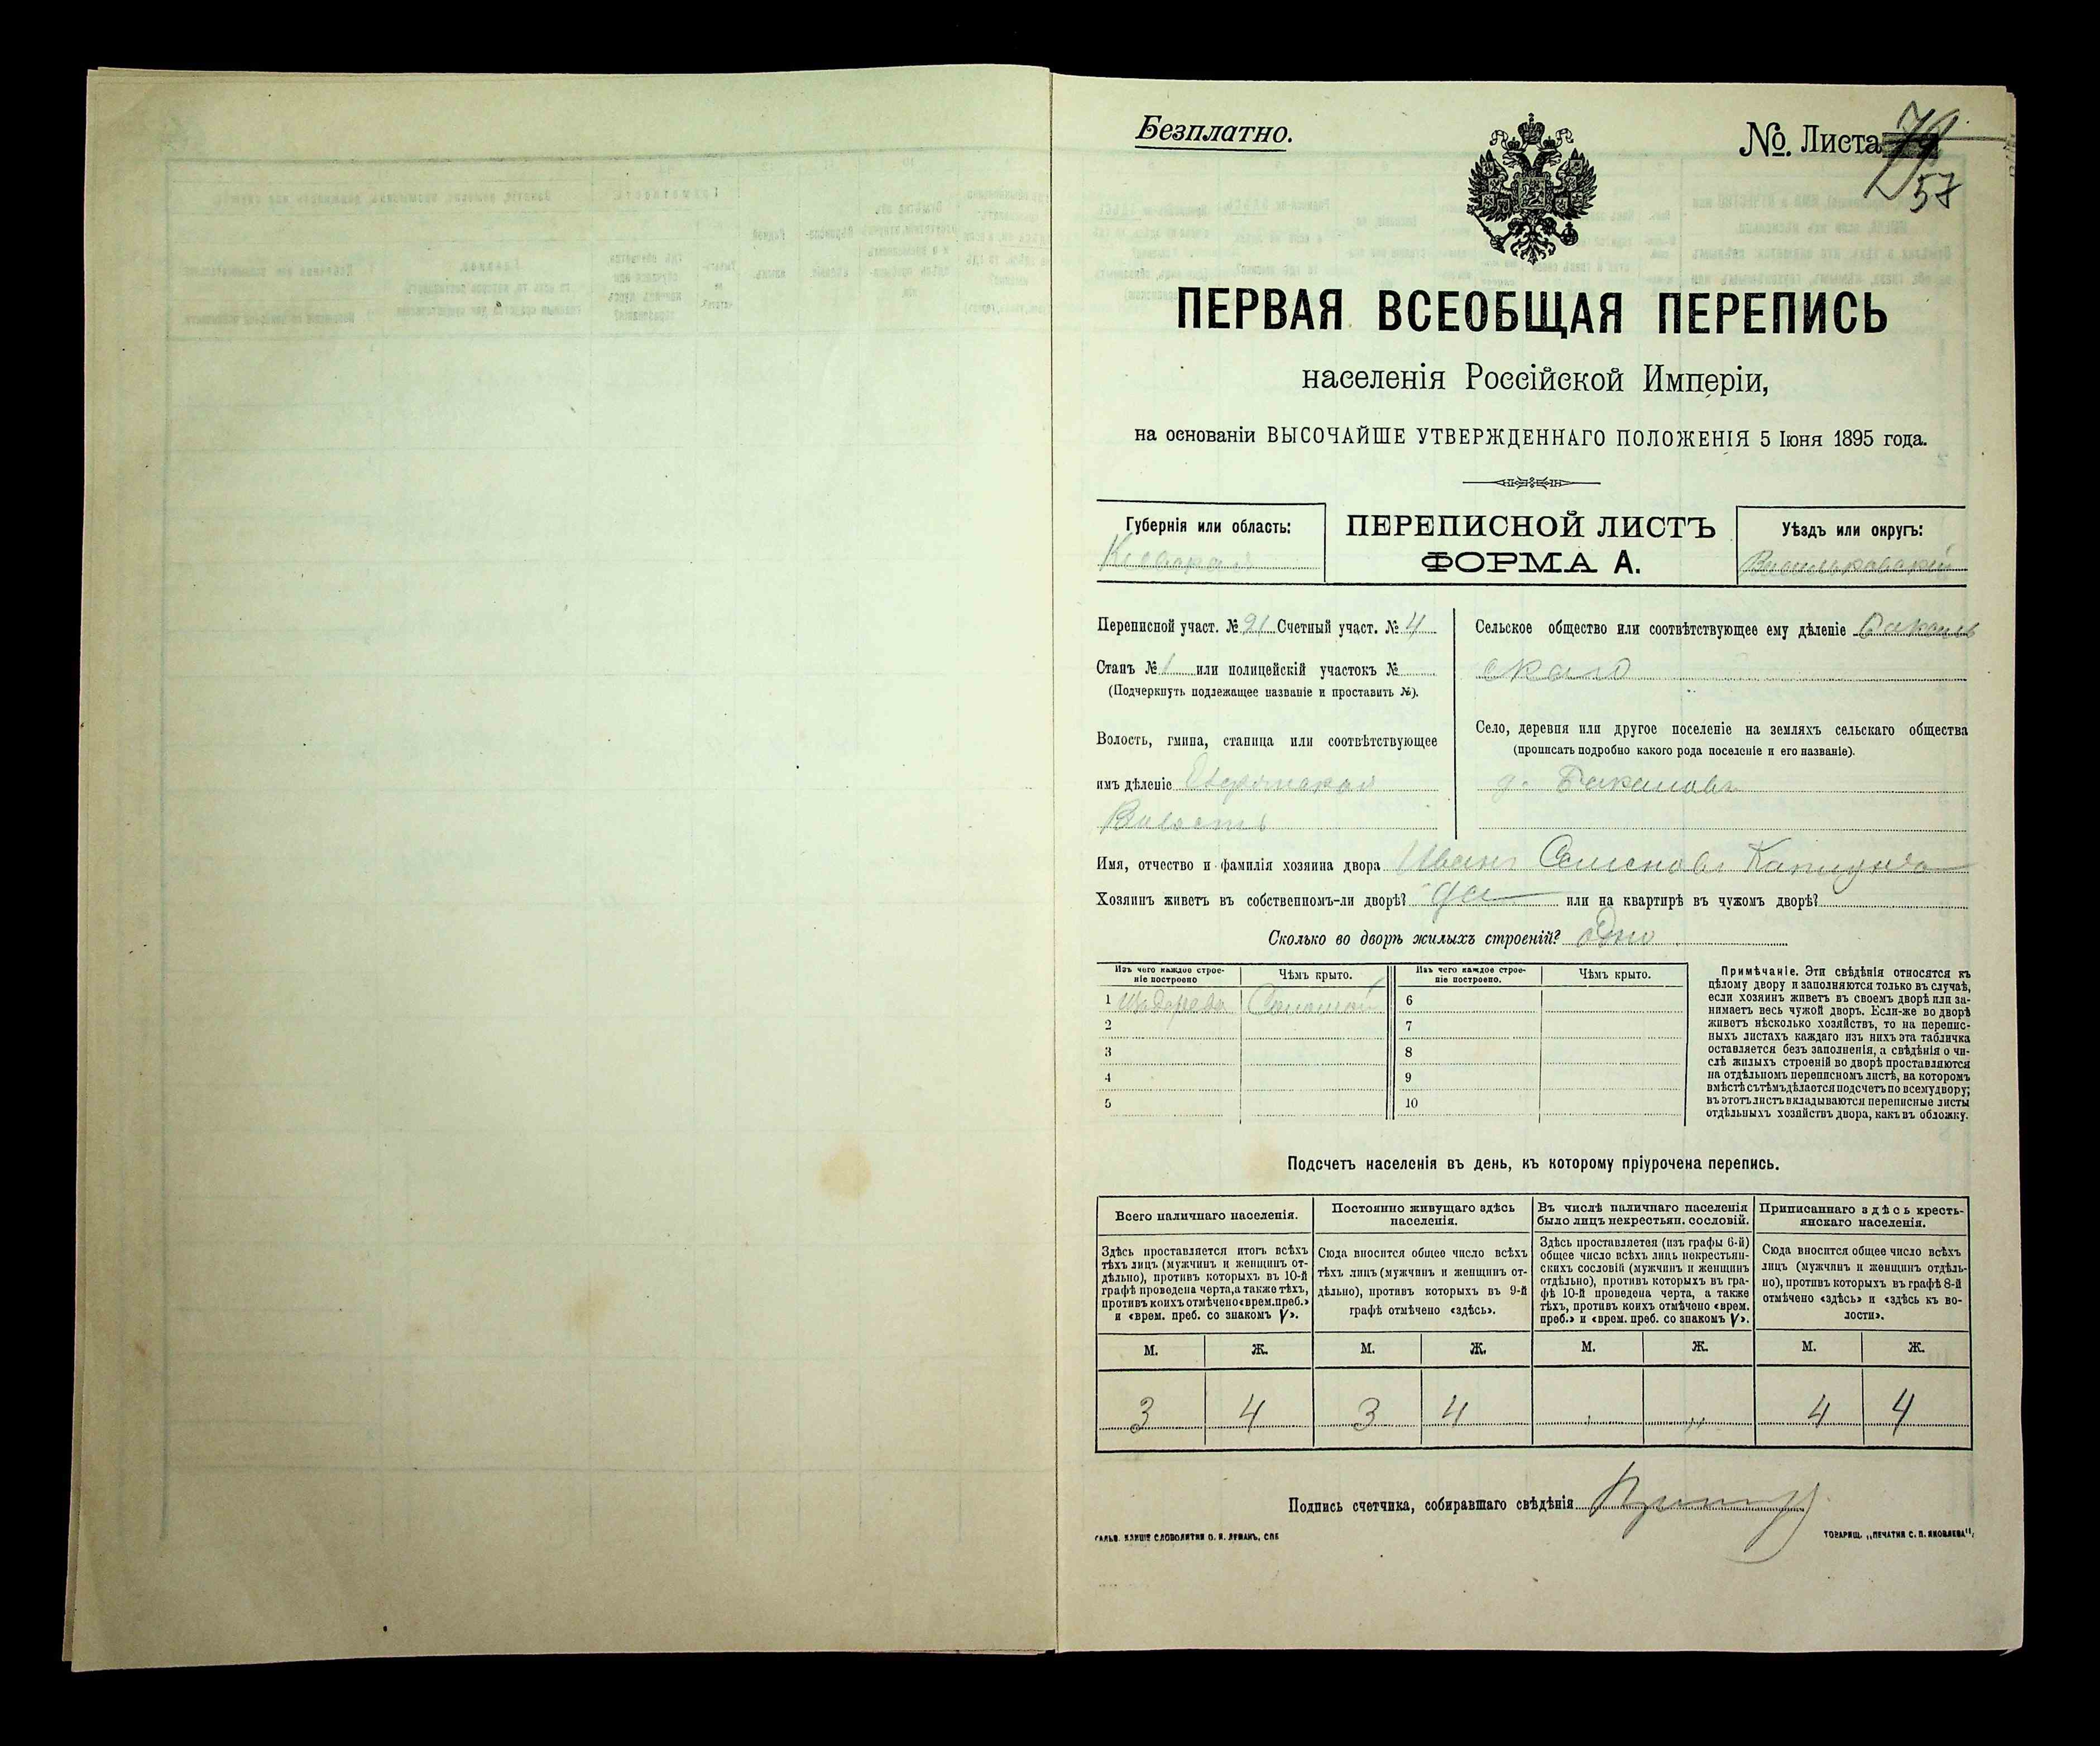 Безплатно.
№. Листа 57
ПЕРВАЯ ВСЕОБЩАЯ ПЕРЕПИСЬ
населенія Россійской Имперіи,
на основаніи ВЫСОЧАЙШЕ УТВЕРЖДЕННАГО ПОЛОЖЕНІЯ 5 Іюня 1895 года.
Губернія или область:
Кіевская
ПЕРЕПИСНОЙ ЛИСТЪ
ФОРМА А.
Уѣздъ или округъ:
Васильковскій
Переписной участ. № 21 Счетный участ. № 4
Станъ № 1 или полицейскій участокъ №
(Подчеркнуть подлежащее названіе и проставить №).
Волость, гмина, станица или соотвѣтствующее
имъ дѣленіе
Волость
Сельское общество или соотвѣтствующее ему дѣленіе
скаго
Село, деревня или другое поселеніе на земляхъ сельскаго общества
(прописать подробно какого рода поселеніе и его названіе).
д.
Имя, отчество и фамилія хозяина двора Иванъ Семеновъ
Хозяинъ живетъ въ собственномъ-ли дворѣ? да или на квартирѣ въ чужомъ дворѣ?
Сколько во дворѣ жилыхъ строеній? Одно
Изъ чего каждое строе-
ніе построено
Чѣмъ крыто.
Изъ чего каждое строе-
ніе построено.
Чѣмъ крыто.
1 Изъ дерева Соломой
2
3
4
5
6
7
8
9
10
Примѣчаніе. Эти свѣдѣнія относятся къ
цѣлому двору и заполняются только въ случаѣ,
если хозяинъ живетъ въ своемъ дворѣ или за-
нимаетъ весь чужой дворъ. Если-же во дворѣ
живетъ нѣсколько хозяйствъ, то на перепис-
ныхъ листахъ каждаго изъ нихъ эта табличка
оставляется безъ заполненія, а свѣдѣнія о чи-
слѣ жилыхъ строеній во дворѣ проставляются
на отдѣльномъ переписномъ листѣ, на которомъ
вмѣстѣ съ тѣмъ дѣлается подсчетъ по всему двору;
въ этотъ листъ вкладываются переписные листы
отдѣльныхъ хозяйствъ двора, какъ въ обложку.
Подсчетъ населенія въ день, къ которому пріурочена перепись.
Всего наличнаго населенія.
Здѣсь проставляется итогъ всѣхъ
тѣхъ лицъ (мужчинъ и женщинъ от-
дѣльно), противъ которыхъ въ 10-й
графѣ проведена черта, а также тѣхъ,
противъ коихъ отмѣчено «врем. преб.»
и «врем. преб. со знакомъ V».
Постоянно живущаго здѣсь
населенія.
Сюда вносится общее число всѣхъ
тѣхъ лицъ (мужчинъ и женщинъ от-
дѣльно), противъ которыхъ въ 9-й
графѣ отмѣчено «здѣсь».
Въ числѣ наличнаго населенія
было лицъ некрестьян. сословій.
Здѣсь проставляется (изъ графы 6-й)
общее число всѣхъ лицъ некрестьян-
скихъ сословій (мужчинъ и женщинъ
отдѣльно), противъ которыхъ въ гра-
фѣ 10-й проведена черта, а также
тѣхъ, противъ коихъ отмѣчено «врем.
преб.» и «врем. преб. со знакомъ V».
Приписаннаго здѣсь кресть-
янскаго населенія.
Сюда вносится общее число всѣхъ
лицъ (мужчинъ и женщинъ отдѣль-
но), противъ которыхъ въ графѣ 8-й
отмѣчено «здѣсь» и «здѣсь къ во-
лости».
М. Ж. М. Ж. М. Ж. М. Ж.
3 4 3 4 „ „ 4 4
Подпись счетчика, собиравшаго свѣдѣнія
ГАЛЬВ. КЛИШЕ СЛОВОЛИТНИ О. И. ЛЕМАНЪ, СПБ
ТОВАРИЩ. „ПЕЧАТНЯ С. П. ЯКОВЛЕВА“.